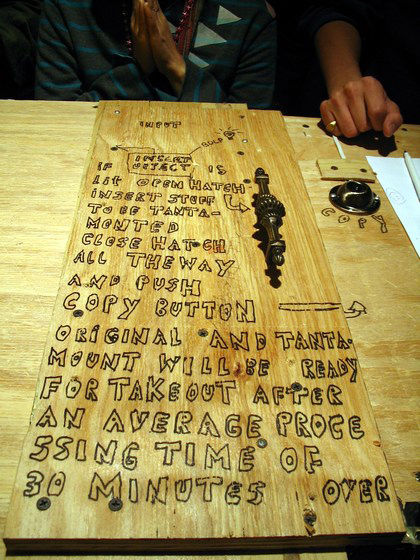 INPUT
BULB
IF INSERT OBJECT IS
LIT OPEN HATCH
INSERT STUFF
TO BE TANTA-
MOUNTED
CLOSE HATCH
ALL THE WAY
AND PUSH
COPY BUTTON
ORIGINAL AND TANTA-
MOUNT WILL BE READY
FOR TAKEOUT AFTER
AN AVERAGE PROCE
SSING TIME OF
30 MINUTES OVER
COPY